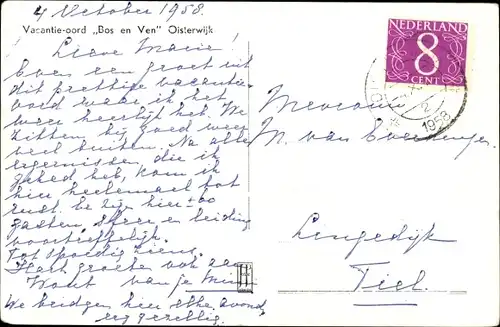 4 October 1958.
Vacantie-oord „Bos en Ven" Oisterwijk
Lieve Marie!
Even een groet uit
dit prettige vacantie-
oord waar ik het
weer heerlijk heb. We
zitten bij goed weer
veel buiten. Na alle
ergernissen, die ik
gehad heb, kom ik
hier heelemaal tot
rust. Er zijn hier ±00
gasten, sfeer en leiding
voortreffelijk.
Tot spoedig ziens.
Hart. groeten ook aan
Wout van je
We bridgen hier elke avond,
erg gezellig.
NEDERLAND
8
CENT
1958
Mevrouw
M. van
Lingedijk
Tiel.